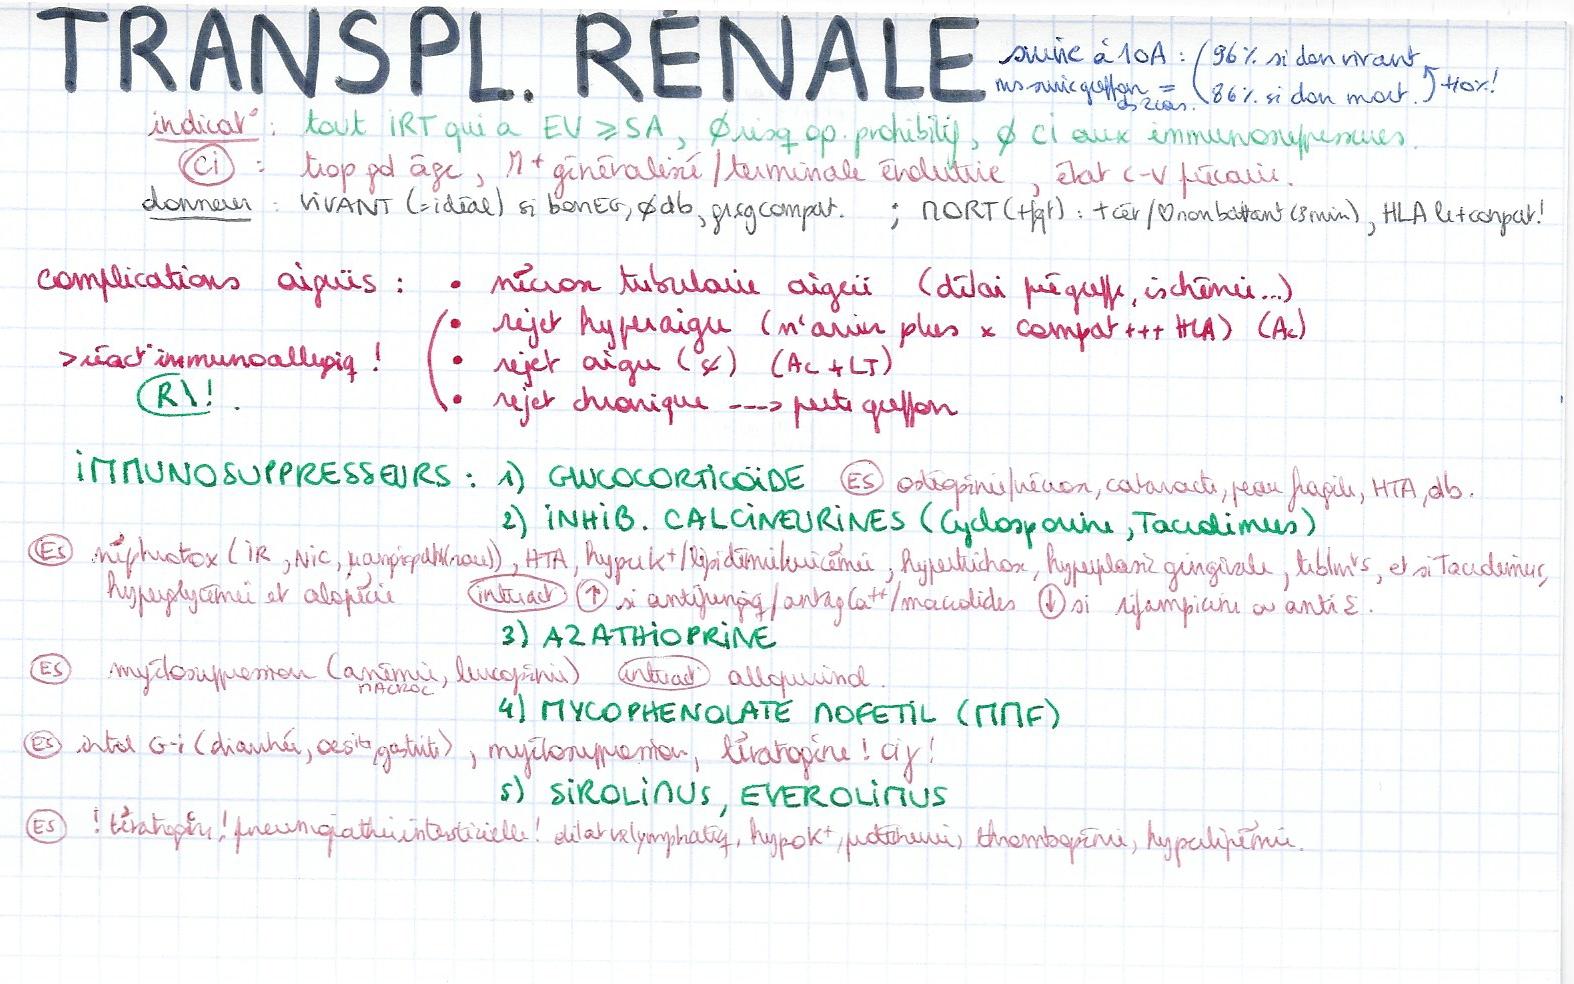 TRANSPL. RÉNALE
survie à 10A : 96% si don vivant
ms survie greffon = 86% si don mort. +10%!
indicat° : tout IRT qui a EV ≥ 5A, Ø risq op. prohibitif, Ø CI aux immunosuppresseurs.
CI : trop gd âge, M+ généralisé/terminale évolutive, état C-V précaire.
donneur : VIVANT (=idéal) si bon EG, Ø db, grsg compat. ; MORT (+fqt) : + cér/♡ non battant (3min), HLA le + compat!
complications aiguës : • nécrose tubulaire aigüe (délai prégreffe, ischémie...)
• rejet hyperaigu (n'arrive plus × compat +++ HLA) (Ac)
>réact° immunoallergiq ! • rejet aigu (Ac + LT)
R\! . • rejet chronique ---> perte greffon
IMMUNOSUPPRESSEURS : 1) GLUCOCORTICOÏDE ES ostéopénie/nécrose, cataracte, peau fragile, HTA, db.
2) INHIB. CALCINEURINES (Cyclosporine, Tacrolimus)
ES néphrotox (IR, NIC, µangiopath(rare)), HTA, hyperK+/lipidémie/uricémie, hypertrichose, hyperplasie gingivale, trblmts, et si Tacrolimus,
hyperglycémie et alopécie interact ↑ si antifungiq/antagCa++/macrolides ↓ si rifampicine ou antiΣ.
3) AZATHIOPRINE
ES myélosuppression (anémie, leucopénie) interact allopurinol.
MACROC
4) MYCOPHENOLATE MOFETIL (MMF)
ES intol G-I (diarrhée, oesite, gastrite), myélosuppression, tératogène !
5) SIROLIMUS, EVEROLIMUS
ES ! tératogène ! pneumopathie interstitielle ! hypoK+, thrombopénie, hyperlipémie.